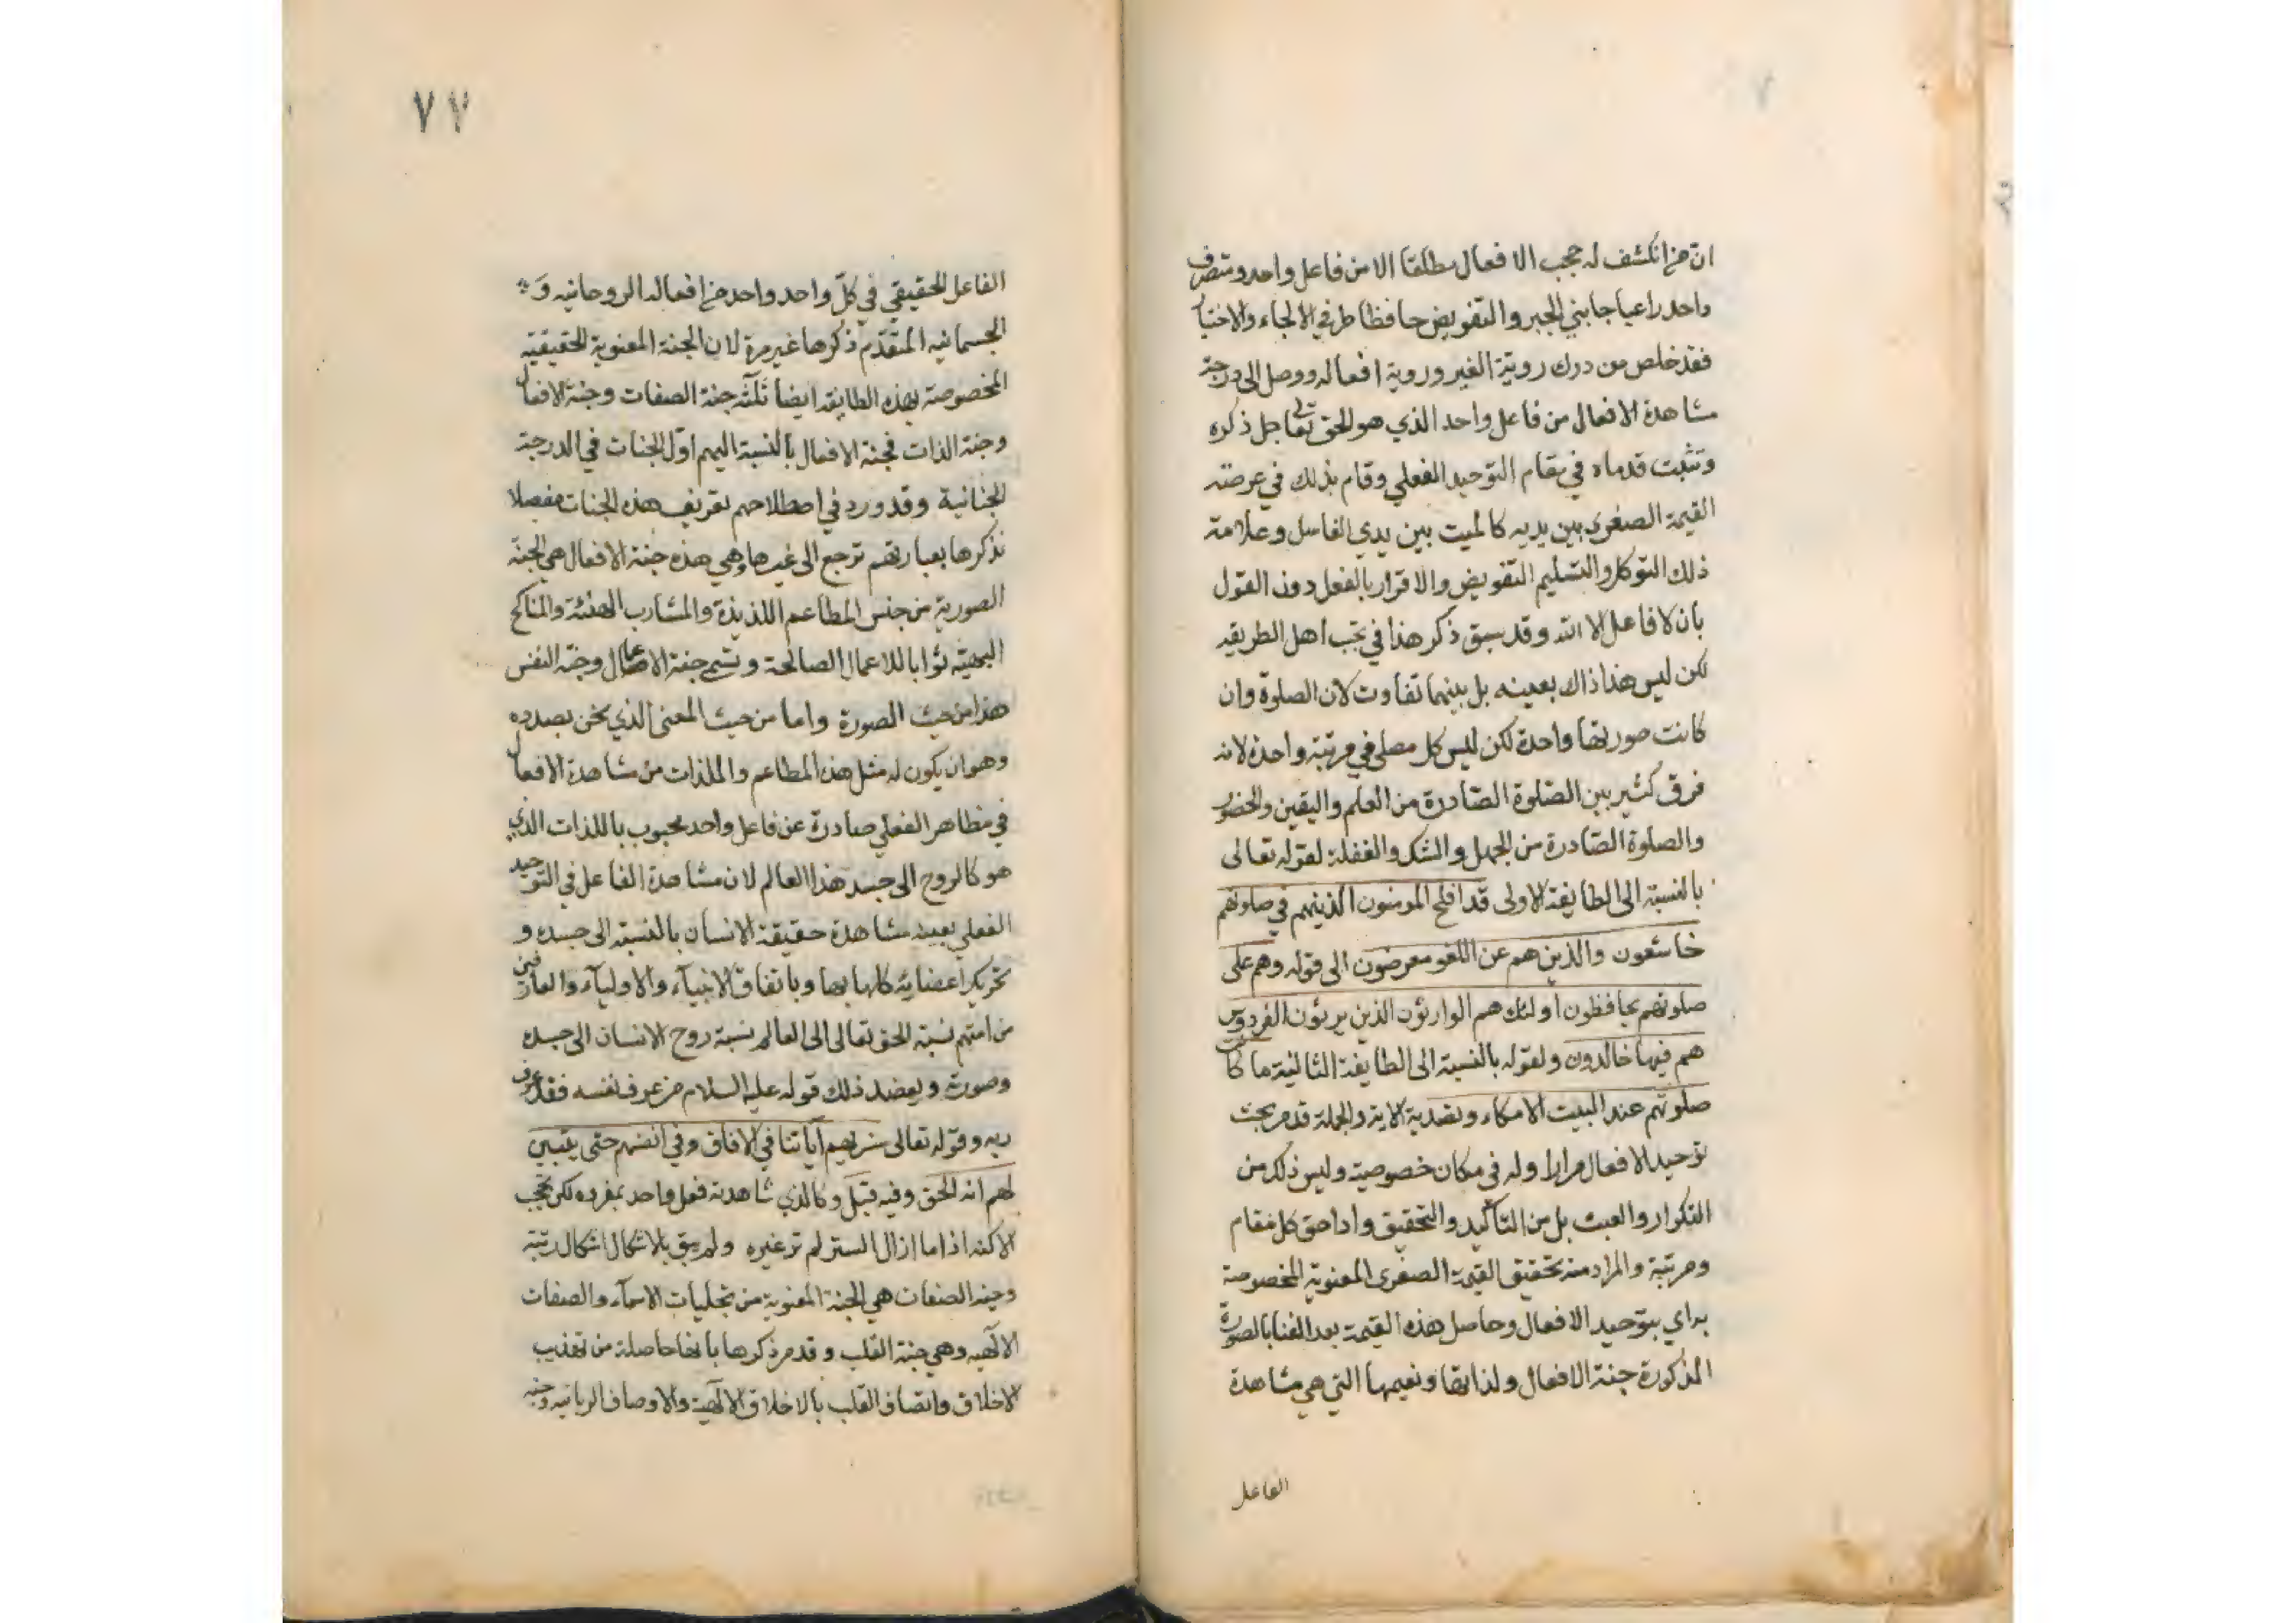 ان من انكشف له حجب الافعال مطلقا الا من فاعل واحد ومتصرف
واحد راعيا جانبي الجبر والتفويض حافظا طرفي الالجاء والاختيار
فقد خلص من درك روية الغير وروية افعاله ووصل الى درجة
مشاهدة الافعال من فاعل واحد الذي هو الحق تعالى جل ذكره
وتثبت قدماه في مقام التوحيد الفعلي وقام بذلك في عرصة
القيمة الصغرى بين يديه كالميت بين يدي الغاسل وعلامة
ذلك التوكل والتسليم التفويض والاقرار بالفعل دون القول
بان لا فاعل الا الله وقد سبق ذكر هذا في اهل الطريقه
لكن ليس هذا ذاك بعينه بل بينهما تفاوت لان الصلوة وان
كانت صورتها واحدة لكن ليس كل مصلى في مرتبة واحدة لانه
فرق كثير بين الصلوة الصادرة من العلم واليقين والحضور
والصلوة الصادرة من الجهل والشك والغفلة لقوله تعالى
بالنسبة الى الطايفة الاولى قد افلح المومنون الذينهم في صلوتهم
خاشعون والذين هم عن اللغو معرضون الى قوله وهم على
صلوتهم يحافظون اولئك هم الوارثون الذين يرثون الفردوس
هم فيها خالدون ولقوله بالنسبة الى الطايفة الثانية ما كان
صلوتهم عند البيت الا مكاء وتصدية الاية والجملة قد مر بحث
توحيد الافعال مرارا وله في مكان خصوصية وليس ذلك من
التكرار والعبث بل من التأكيد والتحقيق واداحق كل مقام
ومرتبة والمراد منه تحقيق القيمة الصغرى المعنوية المخصوصة
به اي بتوحيد الافعال وحاصل هذه القيمة بعد الفنا بالصورة
المذكورة جنة الافعال ولذاتها ونعيمها التي هي مشاهدة
الفاعل
٧٧
الفاعل الحقيقي في كل واحد واحد من افعاله الروحانيه و
الجسمانيه المتقدم ذكرها غير مرة لان الجنة المعنوية الحقيقيه
المخصوصة بهذه الطايفه ايضا ثلثة جنة الصفات وجنة الافعال
وجنة الذات فجنة الافعال بالنسبة اليهم اول الجنات في الدرجة
الجنانية وقد ورد في اصطلاحهم تعريف هذه الجنات مفصلا
نذكرها بعبارتهم ترجع الى غيرها وهي هذه جنة الافعال هي الجنة
الصورية من جنس المطاعم اللذيذة والمشارب الهنئة والمناكح
البهيه ثوابا للاعمال الصالحة وتسمى جنة الاعمال وجنة النفس
هذا من حيث الصورة واما من حيث المعنى الذي نحن بصدده
وهو ان يكون له مثل هذه المطاعم والملذات من مشاهدة الافعال
في مظاهر الفعلي صادرة عن فاعل واحد محبوب باللذات الذي
هو كالروح الى جسد هذا العالم لان مشاهدة الفاعل في التوحيد
الفعلي بعينه مشاهدة حقيقة الانسان بالنسبة الى جسده و
تحريك اعضائه كلها بها وباتفاق الانبيآء والاوليآء والعارفين
من امتهم نسبة الحق تعالى الى العالم نسبة روح الانسان الى جسده
وصورته ويعضد ذلك قوله عليه السلام من عرف نفسه فقد عرف
ربه وقوله تعالى سنريهم آياتنا في الافاق وفي انفسهم حتى يتبين
لهم انه الحق وفيه قيل وكالذي شاهدته فعل واحد بمفرده لكن بحجب
الاكنه اذا ما ازال الستر لم تر غيره ولم يبق بالاشكال اشكال ريبة
وجنة الصفات هي الجنة المعنوية من تجليات الاسمآء والصفات
الالٓهيه وهي جنة القلب وقد مر ذكرها بانها حاصلة من تهذيب
الاخلاق واتصاف القلب بالاخلاق الالٓهية والاوصاف الربانيه وجنة